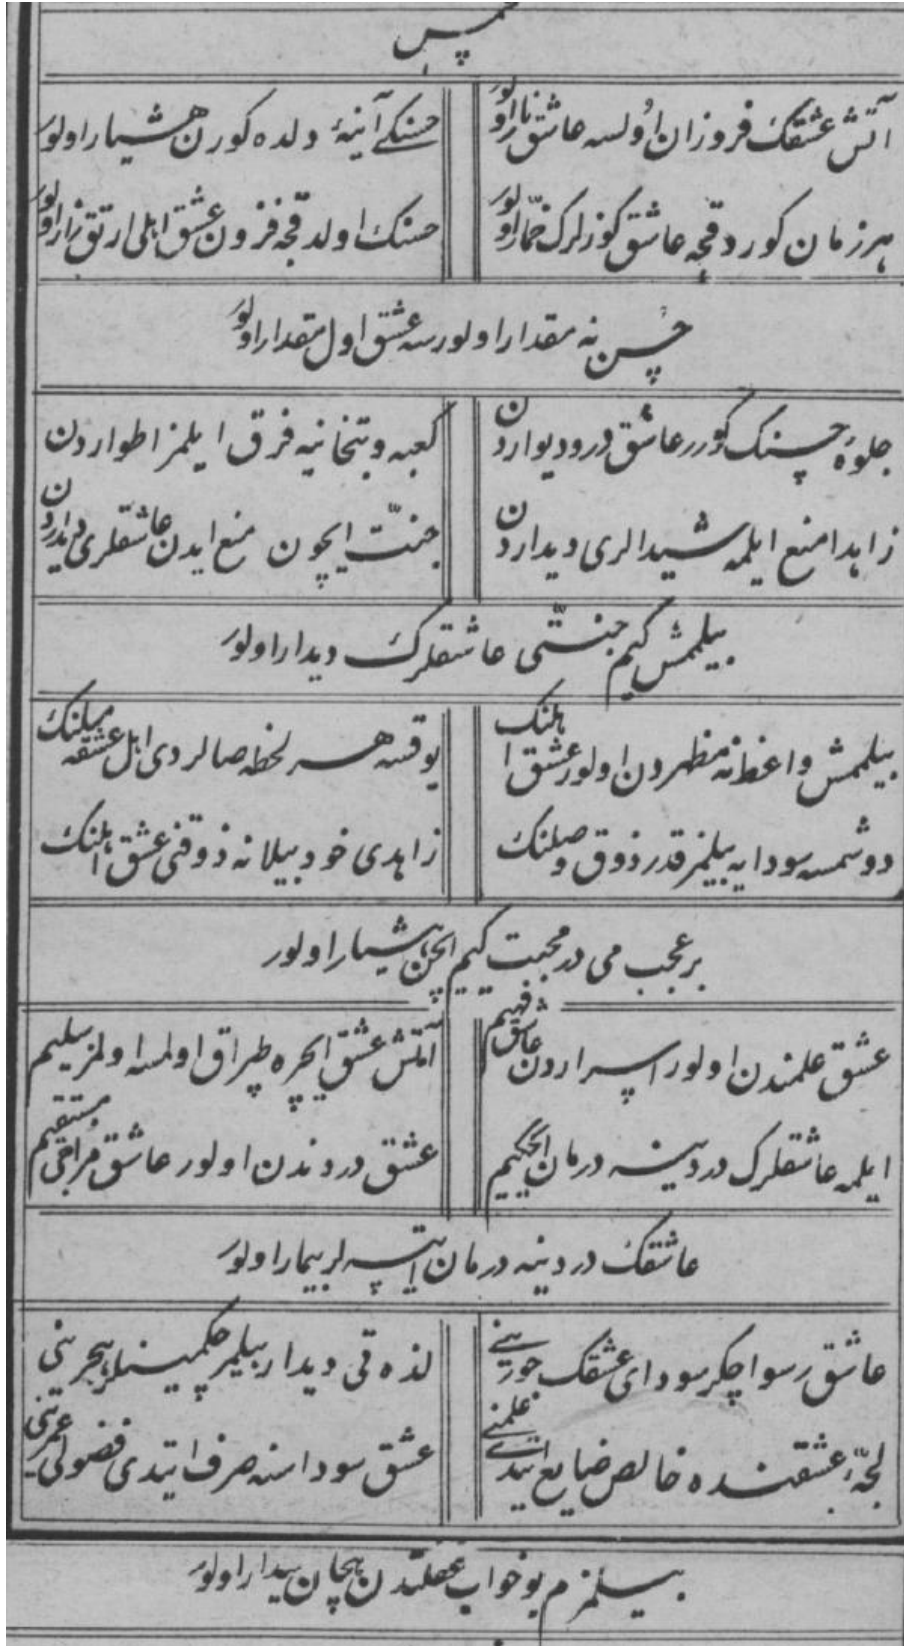 مخمس
آتش عشقك فروزان اولسه عاشق نار اولور
حسنكے آینهٔ دلده كورن هشیار اولور
هر زمان كوردقجه عاشق كوزلرك خمّار اولور
حسنك اولدقجه فزون عشق اهلی ارتق زار اولور
حسن نه مقدار اولورسه عشق اول مقدار اولور
جلوهٔ حسنك كورر عاشق در و دیواردن
كعبه و بتخانیه فرق ایلمز اطواردن
زاهدا منع ایلمه شیدالری دیداردن
جنّت ایچون منع ایدن عاشقلری دیداردن
بیلممش كیم جنّتی عاشقلرك دیدار اولور
بیلممش واعظ نه مظهردن اولور عشق اهلنك
یوقسه هر لحظه صالردی اهل عشقه میلنك
دوشمسه سودایه بیلمز قدر ذوق وصلنك
زاهدی خود بیلا نه ذوقنی عشق اهلنك
بر عجب می در محبت كیم ایچن هشیار اولور
عشق علمندن اولور اسراردن عاشق فهیم
آتش عشق ایچره طپراق اولمسه اولمز سلیم
ایلمه عاشقلرك دردینه درمان ای حكیم
عشق دردندن اولور عاشق مزاجی مستقیم
عاشقك دردینه درمان ایتسه لر بیمار اولور
عاشق رسوا چكر سودای عشقك جورینی
لذه قی دیدار بیلمز چكمینلر هجرینی
لجّهٔ عشقنده خالص ضایع ایتدی علمنی
عشق سوداسنه صرف ایتدی فضولی عمرینی
بیلمزم بو خواب غفلتدن هچان بیدار اولور